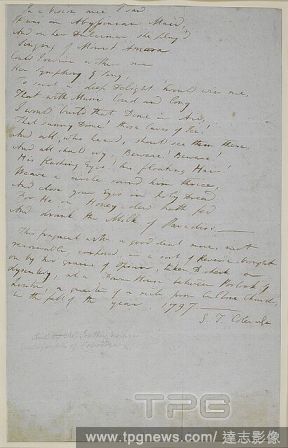 In a Vision once I saw:
It was an Abyssinian Maid,
And on her Dulcimer she play'd
Singing of Mount Amara
Could I revive within me
Her Symphony & Song,
To such a deep Delight 'twould win me,
That with Music loud and long
I would build that Dome in Air,
That sunny Dome! those Caves of Ice!
And all, who heard, should see them there,
And all should cry, Beware! Beware!
His flashing Eyes! his floating Hair!
Weave a circle round him thrice,
And close your Eyes in holy Dread:
For He on Honey-dew hath fed
And drank the Milk of Paradise.—
This fragment with a good deal more, not
recoverable, composed, in a sort of Reverie brought
on by two grains of Opium, taken to check a
dysentery, at a Farm House between Porlock &
Linton, a quarter of a mile from Culbone Church,
in the fall of the year, 1797.
S. T. Coleridge
TPG
www.tpgnews.com/達志影像